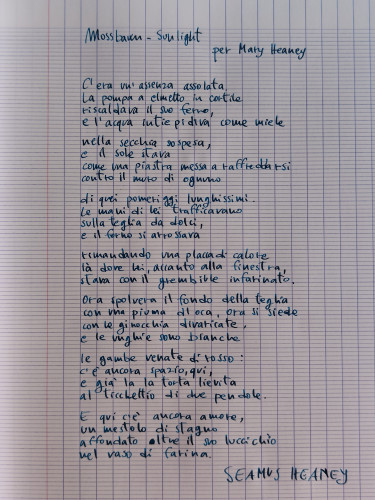 Mossbawn - Sunlight
per Mary Heaney
C'era un'assenza assolata
La pompa a elmetto in cortile
riscaldava il suo ferro,
e l'acqua intiepidiva come miele
nella secchia sospesa,
e il sole stava
come una piastra messa a raffreddarsi
contro il muro di ognuno
di quei pomeriggi lunghissimi.
Le mani di lei trafficavano
sulla teglia da dolci,
e il forno si arrossava
rimandando una placca di calore
là dove lei, accanto alla finestra,
stava con il grembiule infarinato.
Ora spolvera il fondo della teglia
con una piuma d'oca, ora si siede
con le ginocchia divaricate,
e le unghie sono bianche
le gambe venate di rosso:
c'è ancora spazio, qui,
e già la la torta lievita
al ticchettio di due pendole.
E qui c'è ancora amore,
un mestolo di stagno
affondato oltre il suo luccichio
nel vaso di farina.
SEAMUS HEANEY